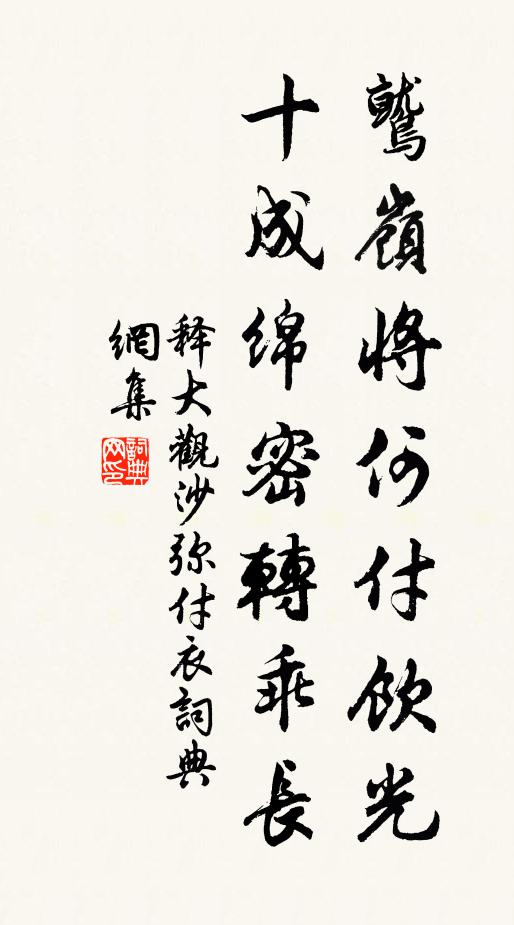 鷲嶺將何付飲光
十成綿密轉乖長
释大觀沙弥付衣詞典
網集
詞典網印